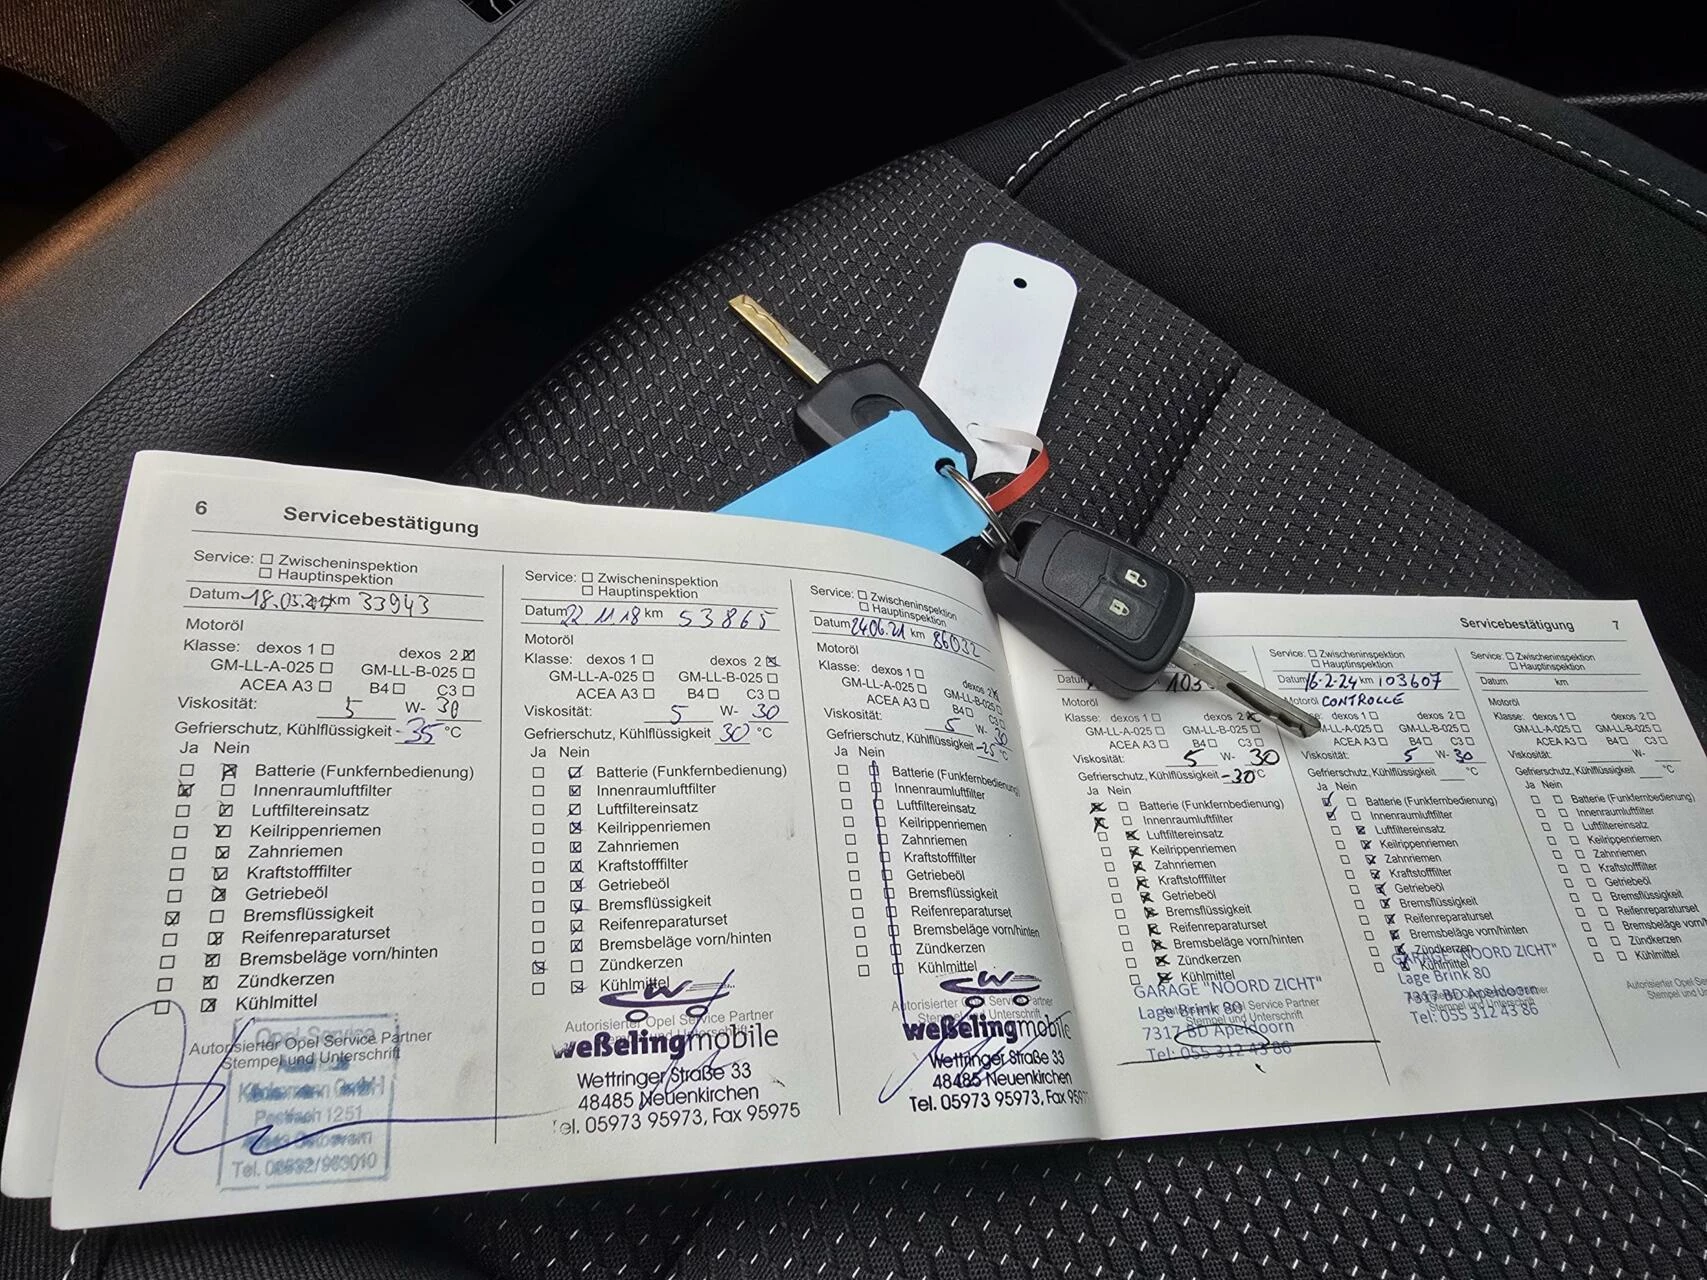 6 Servicebestätigung
Service: Zwischeninspektion
Hauptinspektion
Datum 18.05. km 33943
Motoröl
Klasse: dexos 1 dexos 2
GM-LL-A-025 GM-LL-B-025
ACEA A3 B4 C3
Viskosität: 5 W- 30
Gefrierschutz, Kühlflüssigkeit -35 °C
Ja Nein
Batterie (Funkfernbedienung)
Innenraumluftfilter
Luftfiltereinsatz
Keilrippenriemen
Zahnriemen
Kraftstofffilter
Getriebeöl
Bremsflüssigkeit
Reifenreparaturset
Bremsbeläge vorn/hinten
Zündkerzen
Kühlmittel
Autorisierter Opel Service Partner
Stempel und Unterschrift
Opel Service
GmbH
Postfach 1251
Tel.
Service: Zwischeninspektion
Hauptinspektion
Datum 22 11.18 km 53865
Motoröl
Klasse: dexos 1 dexos 2
GM-LL-A-025 GM-LL-B-025
ACEA A3 B4 C3
Viskosität: 5 W- 30
Gefrierschutz, Kühlflüssigkeit 30 °C
Ja Nein
Batterie (Funkfernbedienung)
Innenraumluftfilter
Luftfiltereinsatz
Keilrippenriemen
Zahnriemen
Kraftstofffilter
Getriebeöl
Bremsflüssigkeit
Reifenreparaturset
Bremsbeläge vorn/hinten
Zündkerzen
Kühlmittel
Autorisierter Opel Service Partner
Stempel und Unterschrift
weßelingmobile
Wettringer Straße 33
48485 Neuenkirchen
Tel. 05973 95973, Fax 95975
Service: Zwischeninspektion
Hauptinspektion
Datum 24.06.21 km 86032
Motoröl
Klasse: dexos 1 dexos 2
GM-LL-A-025 GM-LL-B-025
ACEA A3 B4 C3
Viskosität: 5 W- 30
Gefrierschutz, Kühlflüssigkeit -25 °C
Ja Nein
Batterie (Funkfernbedienung)
Innenraumluftfilter
Luftfiltereinsatz
Keilrippenriemen
Zahnriemen
Kraftstofffilter
Getriebeöl
Bremsflüssigkeit
Reifenreparaturset
Bremsbeläge vorn/hinten
Zündkerzen
Kühlmittel
Autorisierter Opel Service Partner
Stempel und Unterschrift
weßelingmobile
Wettringer Straße 33
48485 Neuenkirchen
Tel. 05973 95973, Fax
Servicebestätigung 7
Motoröl
Klasse: dexos 1 dexos 2
GM-LL-A-025 GM-LL-B-025
ACEA A3 B4 C3
Viskosität: 5 W- 30
Gefrierschutz, Kühlflüssigkeit -30°C
Ja Nein
Batterie (Funkfernbedienung)
Innenraumluftfilter
Luftfiltereinsatz
Keilrippenriemen
Zahnriemen
Kraftstofffilter
Getriebeöl
Bremsflüssigkeit
Reifenreparaturset
Bremsbeläge vorn/hinten
Zündkerzen
Kühlmittel
GARAGE "NOORD ZICHT"
Lage Brink 80
7317 BD Apeldoorn
Tel: 055 312 43 86
Service: Zwischeninspektion
Hauptinspektion
Datum 16-2-24 km 103607
Motoröl CONTROLLE
dexos 1 dexos 2
GM-LL-A-025 GM-LL-B-025
ACEA A3 B4 C3
Viskosität: 5 W- 30
Gefrierschutz, Kühlflüssigkeit °C
Ja Nein
Batterie (Funkfernbedienung)
Innenraumluftfilter
Luftfiltereinsatz
Keilrippenriemen
Zahnriemen
Kraftstofffilter
Getriebeöl
Bremsflüssigkeit
Reifenreparaturset
Bremsbeläge vorn/hinten
Zündkerzen
Kühlmittel
GARAGE "NOORD ZICHT"
Lage Brink 80
7317 BD Apeldoorn
Tel: 055 312 43 86
Service: Zwischeninspektion
Hauptinspektion
Datum km
Motoröl
Klasse: dexos 1 dexos 2
GM-LL-A-025 GM-LL-B-025
ACEA A3 B4 C3
Viskosität: W-
Gefrierschutz, Kühlflüssigkeit °C
Ja Nein
Batterie (Funkfernbedienung)
Innenraumluftfilter
Luftfiltereinsatz
Keilrippenriemen
Zahnriemen
Kraftstofffilter
Getriebeöl
Bremsflüssigkeit
Reifenreparaturset
Bremsbeläge
Zündkerzen
Kühlmittel
Autorisierter Opel Service
Stempel und